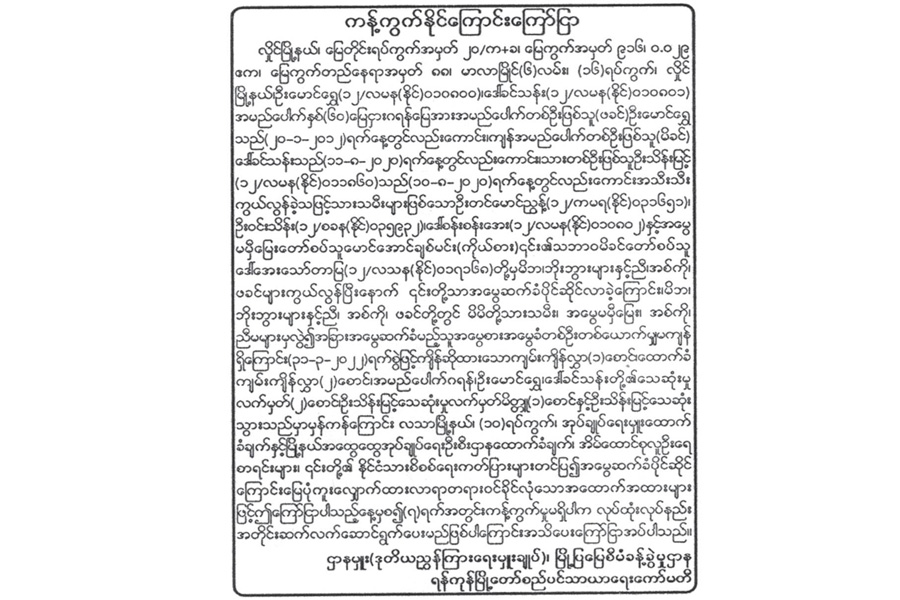 ကန့်ကွက်နိုင်ကြောင်းကြော်ငြာ
လှိုင်မြို့နယ်၊ မြေတိုင်းရပ်ကွက်အမှတ် ၂၀/က+ခ၊ မြေကွက်အမှတ် ၉၁၆၊ ဝ.ဝ၂၉
ဧက၊ မြေကွက်တည်နေရာအမှတ် ၈၈၊ မာလာမြိုင်(၆)လမ်း၊ (၁၆)ရပ်ကွက်၊ လှိုင်
မြို့နယ်၊ဦးမောင်ရွှေ(၁၂/လမန(နိုင်)၀၁၀၈၀၀)၊ဒေါ်ခင်သန်း(၁၂/လမန(နိုင်)၀၁၀၈၀၁)
အမည်ပေါက်နှစ်(၆၀)မြေငှားဂရန်မြေအားအမည်ပေါက်တစ်ဦးဖြစ်သူ(ဖခင်)ဦးမောင်ရွှေ
သည်(၂၀-၁-၂၀၁၂)ရက်နေ့တွင်လည်းကောင်း၊ကျန်အမည်ပေါက်တစ်ဦးဖြစ်သူ(မိခင်)
ဒေါ်ခင်သန်းသည်(၁၁-၈-၂၀၂၀)ရက်နေ့တွင်လည်းကောင်း၊သားတစ်ဦးဖြစ်သူဦးသိန်းမြင့်
(၁၂/လမန(နိုင်)၀၁၁၈၆၀)သည်(၁၀-၈-၂၀၂၀)ရက်နေ့တွင်လည်းကောင်းအသီးသီး
ကွယ်လွန်ခဲ့သဖြင့်သားသမီးများဖြစ်သောဦးတင်မောင်ညွန့်(၁၂/ကမရ(နိုင်)၀၃၁၆၅၁)၊
ဦးဝင်းသိန်း(၁၂/စခန(နိုင်)၀၃၅၉၃၂)၊ဒေါ်စန်းစန်းအေး(၁၂/လမန(နိုင်)၀၁၀၈၀၂)နှင့်အမွေ
မမှီမြေးတော်စပ်သူမောင်အောင်ချစ်မင်း(ကိုယ်စား)၎င်း၏သဘာဝမိခင်တော်စပ်သူ
ဒေါ်အေးသော်တာမြ(၁၂/လသန(နိုင်)၀၁၇၁၆၈)တို့မှမိဘ၊ဘိုးဘွားများနှင့်ညီ၊အစ်ကို၊
ဖခင်များကွယ်လွန်ပြီးနောက် ၎င်းတို့သာအမွေဆက်ခံပိုင်ဆိုင်လာခဲ့ကြောင်း၊မိဘ၊
ဘိုးဘွားများနှင့်ညီ၊ အစ်ကို၊ ဖခင်တို့တွင် မိမိတို့သားသမီး၊ အမွေမမှီမြေး၊ အစ်ကို၊
ညီမများမှလွဲ၍အခြားအမွေဆက်ခံမည့်သူအမွေစားအမွေခံတစ်ဦးတစ်ယောက်မျှမကျန်
ရှိကြောင်း(၃၁-၃-၂၀၂၂)ရက်စွဲဖြင့်ကျိန်ဆိုထားသောကျမ်းကျိန်လွှာ(၁)စောင်၊ထောက်ခံ
ကျမ်းကျိန်လွှာ(၂)စောင်၊အမည်ပေါက်ဂရန်၊ဦးမောင်ရွှေ၊ဒေါ်ခင်သန်းတို့၏သေဆုံးမှု
လက်မှတ်(၂)စောင်၊ဦးသိန်းမြင့်သေဆုံးမှုလက်မှတ်မိတ္တူ(၁)စောင်နှင့်ဦးသိန်းမြင့်သေဆုံး
သွားသည်မှာမှန်ကန်ကြောင်း လသာမြို့နယ်၊ (၁၀)ရပ်ကွက်၊ အုပ်ချုပ်ရေးမှူးထောက်
ခံချက်နှင့်မြို့နယ်အထွေထွေအုပ်ချုပ်ရေးဦးစီးဌာနထောက်ခံချက်၊ အိမ်ထောင်စုလူဦးရေ
စာရင်းများ၊ ၎င်းတို့၏ နိုင်ငံသားစိစစ်ရေးကတ်ပြားများတင်ပြ၍အမွေဆက်ခံပိုင်ဆိုင်
ကြောင်းမြေပုံကူးလျှောက်ထားလာရာတရားဝင်ခိုင်လုံသောအထောက်အထားများ
ဖြင့်ဤကြော်ငြာပါသည့်နေ့မှစ၍(၇)ရက်အတွင်းကန့်ကွက်မှုမရှိပါက လုပ်ထုံးလုပ်နည်း
အတိုင်းဆက်လက်ဆောင်ရွက်ပေးမည်ဖြစ်ပါကြောင်းအသိပေးကြော်ငြာအပ်ပါသည်။
ဌာနမှူး(ဒုတိယညွှန်ကြားရေးမှူးချုပ်)၊ မြို့ပြမြေစီမံခန့်ခွဲမှုဌာန
ရန်ကုန်မြို့တော်စည်ပင်သာယာရေးကော်မတီ